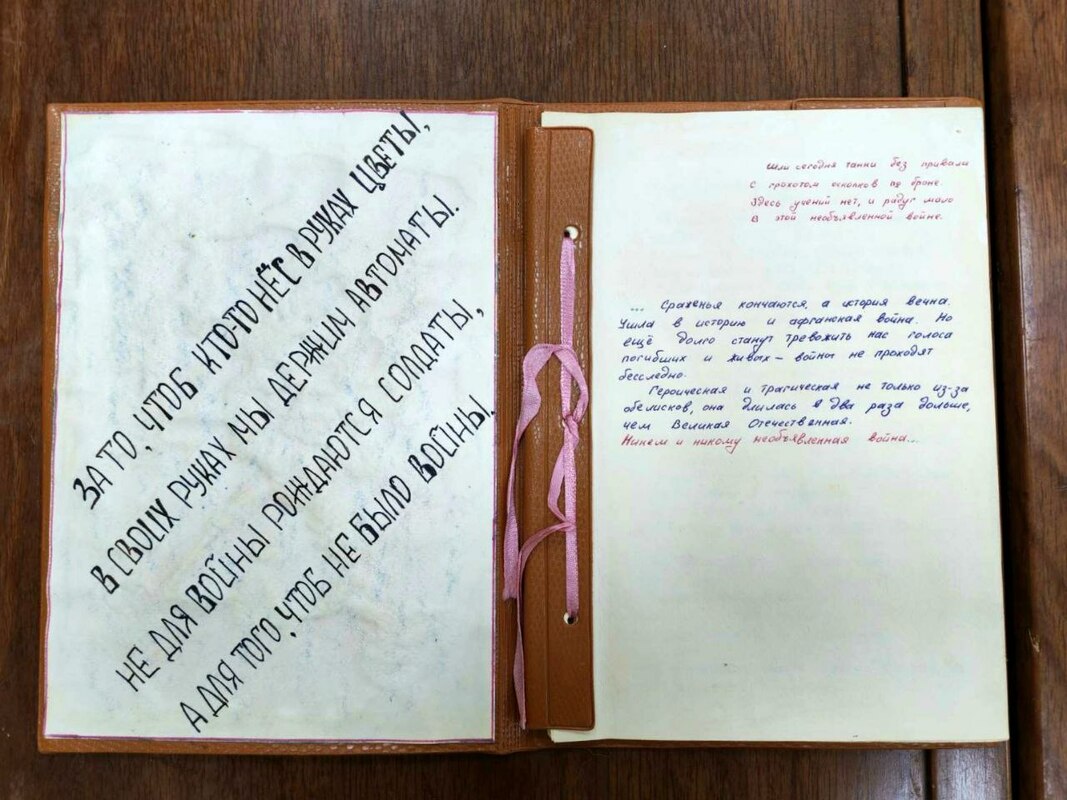 ЗА ТО, ЧТОБ КТО-ТО НЁС В РУКАХ ЦВЕТЫ,
В СВОИХ РУКАХ МЫ ДЕРЖИМ АВТОМАТЫ.
НЕ ДЛЯ ВОЙНЫ РОЖДАЮТСЯ СОЛДАТЫ,
А ДЛЯ ТОГО, ЧТОБ НЕ БЫЛО ВОЙНЫ.
Шли сегодня танки без привала
С грохотом осколков по броне
Здесь учений нет, и радуг мало
В этой необъявленной войне.
... Сраженья кончаются, а история вечна.
Ушла в историю и афганская война. Но
ещё долго станут тревожить нас голоса
погибших и живых – войны не проходят
бесследно.
Героическая и трагическая не только из-за
обелисков, она длилась в два раза дольше,
чем Великая Отечественная.
Никем и никому необъявленная война...